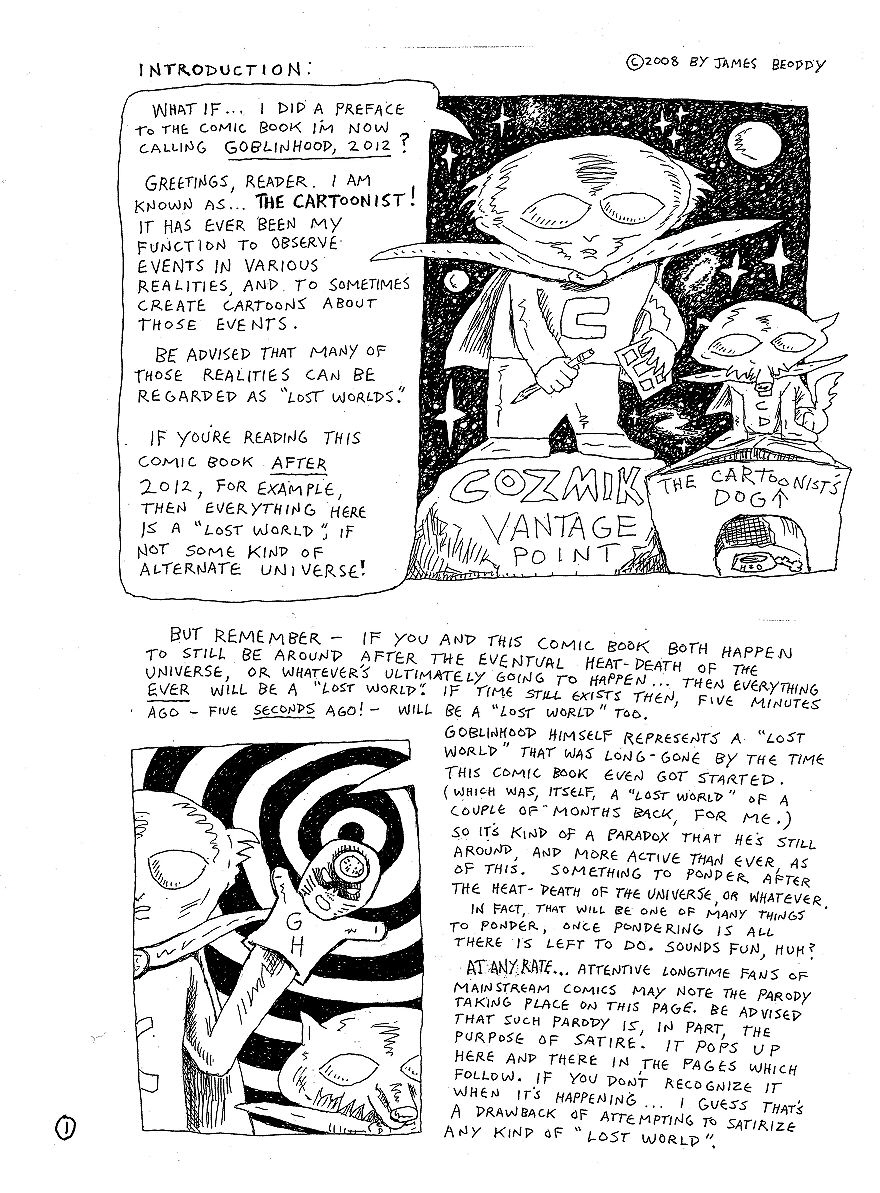 INTRODUCTION:
©2008 BY JAMES BEODDY
WHAT IF... I DID A PREFACE
TO THE COMIC BOOK I'M NOW
CALLING GOBLINHOOD, 2012?
GREETINGS, READER. I AM
KNOWN AS... THE CARTOONIST!
IT HAS EVER BEEN MY
FUNCTION TO OBSERVE
EVENTS IN VARIOUS
REALITIES, AND TO SOMETIMES
CREATE CARTOONS ABOUT
THOSE EVENTS.
BE ADVISED THAT MANY OF
THOSE REALITIES CAN BE
REGARDED AS "LOST WORLDS."
IF YOU'RE READING THIS
COMIC BOOK AFTER
2012, FOR EXAMPLE,
THEN EVERYTHING HERE
IS A "LOST WORLD", IF
NOT SOME KIND OF
ALTERNATE UNIVERSE!
C
CD
COZMIK
VANTAGE
POINT
THE CARTOONIST'S
DOG↑
H2O
BUT REMEMBER - IF YOU AND THIS COMIC BOOK BOTH HAPPEN
TO STILL BE AROUND AFTER THE EVENTUAL HEAT-DEATH OF THE
UNIVERSE, OR WHATEVER'S ULTIMATELY GOING TO HAPPEN... THEN EVERYTHING
EVER WILL BE A "LOST WORLD". IF TIME STILL EXISTS THEN, FIVE MINUTES
AGO - FIVE SECONDS AGO! - WILL BE A "LOST WORLD" TOO.
GOBLINHOOD HIMSELF REPRESENTS A "LOST
WORLD" THAT WAS LONG-GONE BY THE TIME
THIS COMIC BOOK EVEN GOT STARTED.
(WHICH WAS, ITSELF, A "LOST WORLD" OF A
COUPLE OF MONTHS BACK, FOR ME.)
SO IT'S KIND OF A PARADOX THAT HE'S STILL
AROUND, AND MORE ACTIVE THAN EVER, AS
OF THIS. SOMETHING TO PONDER AFTER
THE HEAT-DEATH OF THE UNIVERSE, OR WHATEVER.
IN FACT, THAT WILL BE ONE OF MANY THINGS
TO PONDER, ONCE PONDERING IS ALL
THERE IS LEFT TO DO. SOUNDS FUN, HUH?
AT ANY RATE... ATTENTIVE LONGTIME FANS OF
MAINSTREAM COMICS MAY NOTE THE PARODY
TAKING PLACE ON THIS PAGE. BE ADVISED
THAT SUCH PARODY IS, IN PART, THE
PURPOSE OF SATIRE. IT POPS UP
HERE AND THERE IN THE PAGES WHICH
FOLLOW. IF YOU DON'T RECOGNIZE IT
WHEN IT'S HAPPENING... I GUESS THAT'S
A DRAWBACK OF ATTEMPTING TO SATIRIZE
ANY KIND OF "LOST WORLD".
G
H
1